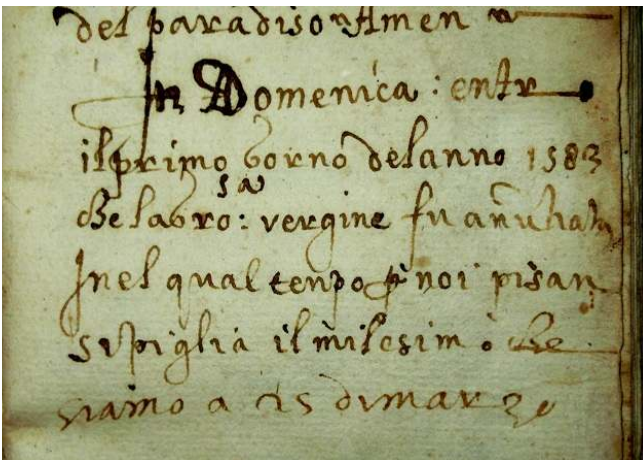 del paradiso Amen
In Domenica : entr
il primo gorno delanno 1583
che la gro:sa vergine fu añuhata
Inel qual tenpo p noi pisan
si piglia il milesimo che
siamo a dis di marzo